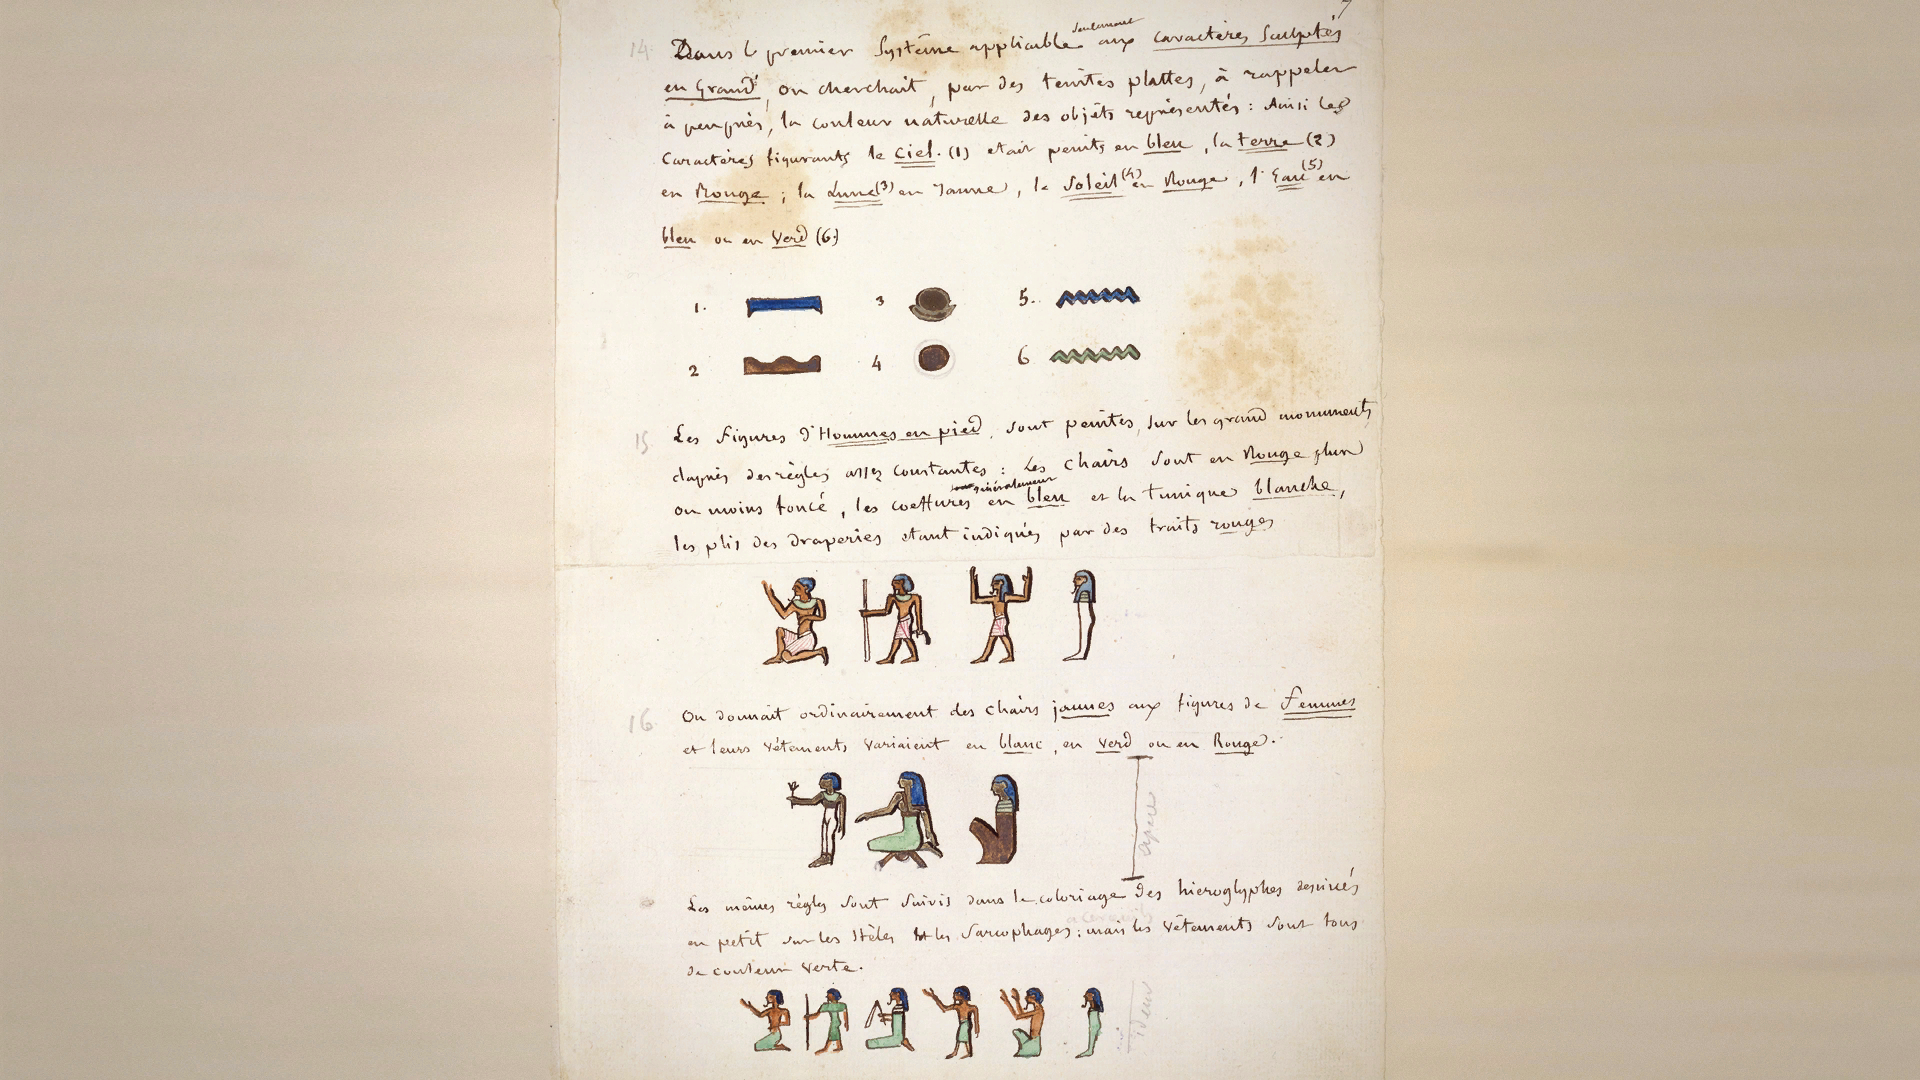 7
seulement
14 Dans le premier Systême applicable aux caractères Sculptés
en Grand, on cherchait, par des teintes plattes, à rappeler
à peu près, la couleur naturelle des objèts représentés : Ainsi les
Caractères figurants le Ciel. (1) etait peints en bleu, la terre (2)
en Rouge ; la Lune (3) en Jaune, le Soleil (4) en Rouge, l'Eau (5) en
bleu ou en Verd (6.)
1. 3 5.
2 4 6
15 Les figures d'Hommes en pied, sont peintes, sur les grand monuments
daprès des règles assez constantes : Les Chairs sont en Rouge plus
généralement
ou moins foncé, les coeffures en bleu et la tunique blanche,
les plis des draperies etant indiqués par des traits rouges
16. On donnait ordinairement des Chairs jaunes aux figures de femmes
et leurs vêtements variaient en blanc, en verd ou en Rouge.
Les mêmes règles sont suivis dans le coloriage des hieroglyphes dessinés
en petit sur les Stèles et les Sarcophages ; mais les vêtements sont tous
de couleur verte.
idem